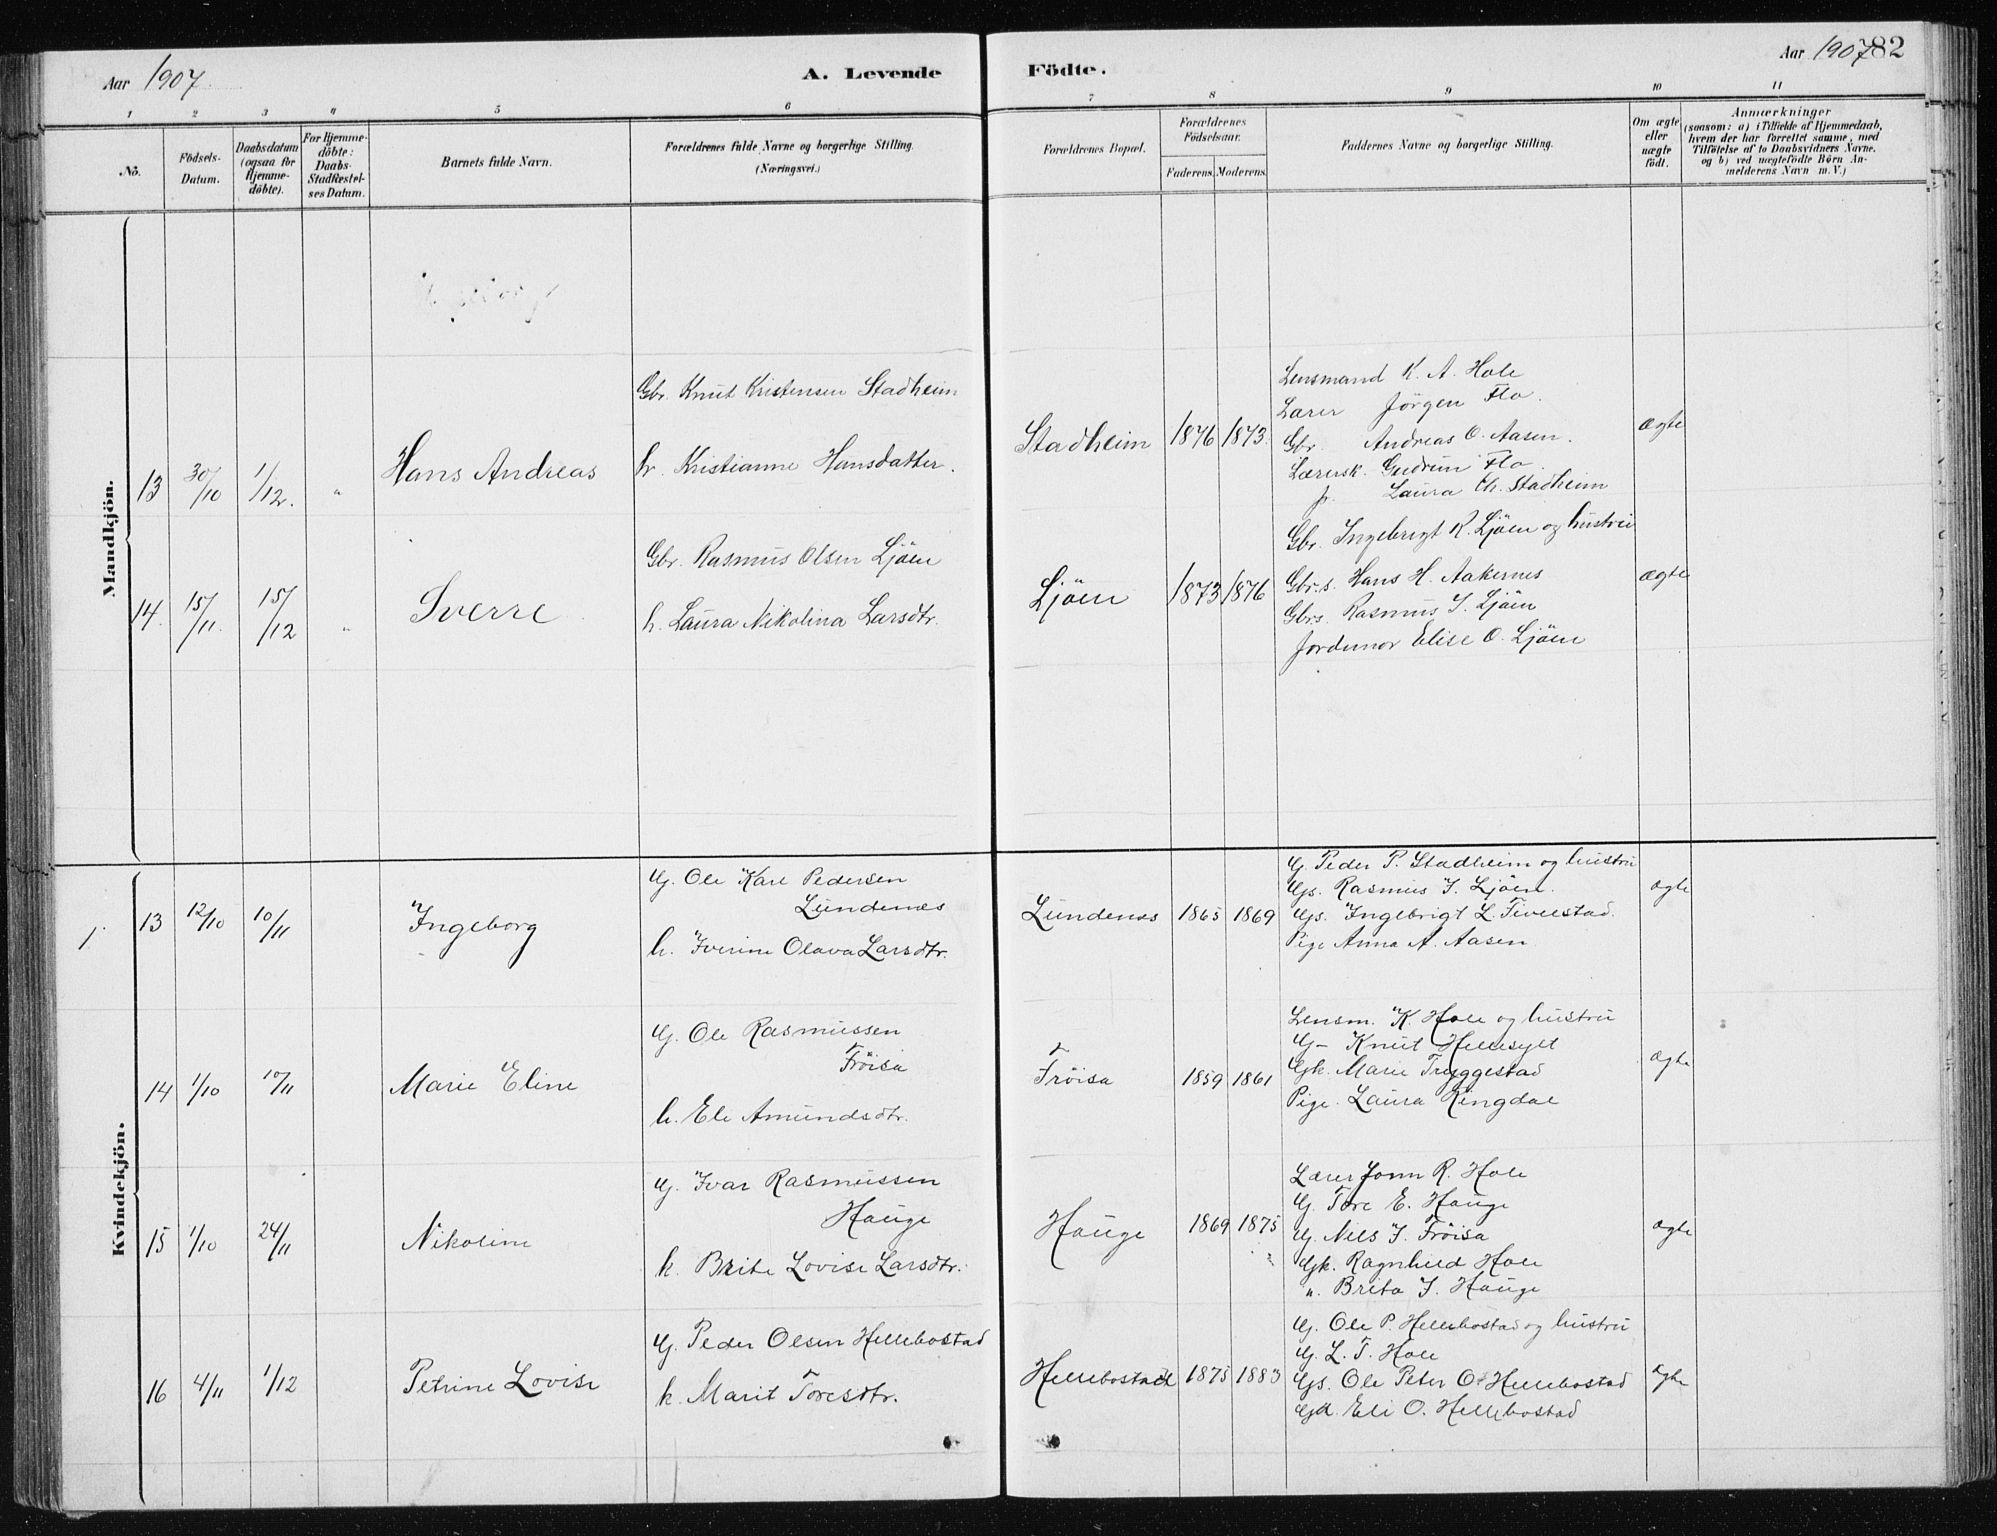 Aar 1907
A. Levende
Födte.
Aar 1907
82
1 2 3 4 5 6 7 8 9 10 11
No.
Födsels-Datum.
Daabsdatum (ogsaa for Hjemme-döbte).
For Hjemme-döbte: Daabs-Stadfæstel-ses Datum.
Barnets fulde Navn.
Forældrenes fulde Navne og borgerlige Stilling.
(Næringsvei.)
Forældrenes Bopæl.
Forældrenes Födselsaar.
Faderens. Moderens.
Faddernes Navne og borgerlige Stilling.
Om ægte eller uægte födt.
Anmærkninger
(saasom: a) i Tilfælde af Hjemmedaab,
hvem der har forrettet samme, med
Tilföielse af to Daabsvidners Navne,
og b) ved uægtefödte Börn An-
melderens Navn m.V.)
Mandkjön.
13 30/10 1/12. " Hans Andreas
Gbr. Knut Kristensen Stadheim
h. Kristianne Hansdatter.
Stadheim 1876 1873.
Lensmand K. A. Hole
Lærer Jörgen Flo.
Gbr. Andreas O. Aasen.
Lærersk. Gudrun Flo.
p. Laura Ch. Stadheim
ægte
14. 15/11. 15/12 " Sverre
Gbr. Rasmus Olsen Ljöen
h. Laura Nikolina Larsdtr.
Ljöen 1873 1876
Gbr. Ingebrigt R. Ljöen og hustru
Gbr.s. Hans H. Aakernes
Gbrs. Rasmus I. Ljöen
Jordmor Elise O. Ljöen
ægte
Kvindekjön.
13 12/10 10/11 Ingeborg
G. Ole Karl Pedersen
Lundenes
h. Iverine Olava Larsdtr.
Lundenes 1865 1869
G. Peder P. Stadheim og hustru
Gs. Rasmus I. Ljöen.
Gs. Ingebrigt L. Tivelstad.
Pige Anna A. Aasen
ægte
14 1/10 10/11 Marie Eline
G. Ole Rasmussen
Fröisa
h. Eli Amundsdtr.
Fröisa 1859 1861
Lensm. K. Hole og hustru
G- Knut Hellesylt
Gk. Marie Tryggestad
Pige. Laura Ringdal
ægte
15 1/10 24/11 Nikoline
G. Ivar Rasmussen
Hauge
h. Brite Lovise Larsdtr.
Hauge 1869 1875
Lærer Jonn R. Hole
G. Tore E. Hauge
G. Nils I. Fröisa
Gk. Ragnhild Hole
". Brita I. Hauge
ægte
16 4/11 1/12 Petrine Lovise
G. Peder Olsen Hellebostad
h. Marit Toresdtr.
Hellebostad 1875 1883
G. Ole P. Hellebostad og hustru
G. L. T. Hole
Gs. Ole Peter O. Hellebostad
Gd. Eli O. Hellebostad
ægte